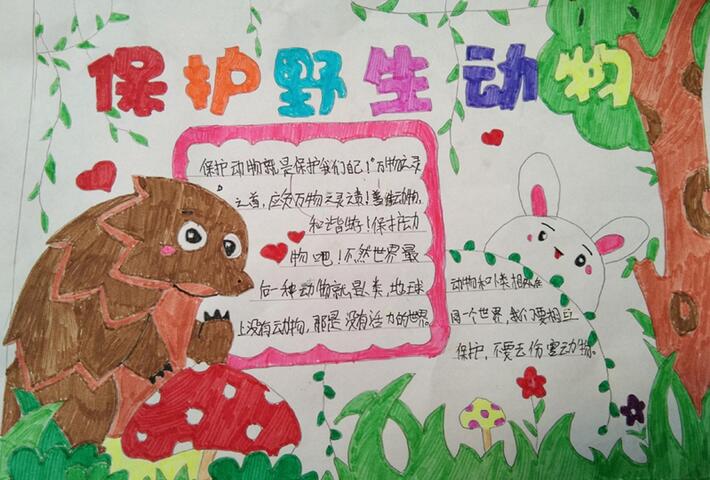 保护野生动物
保护动物就是保护我们自己！"万物之灵
之首，应负万物之灵责！善待动物，
和谐相处！保护动
物吧！不然世界最
后一种动物就是人类，地球
上没有动物，那是没有活力的世界。
动物和人类相处在
同一个世界，我们要相互
保护，不要去伤害动物。